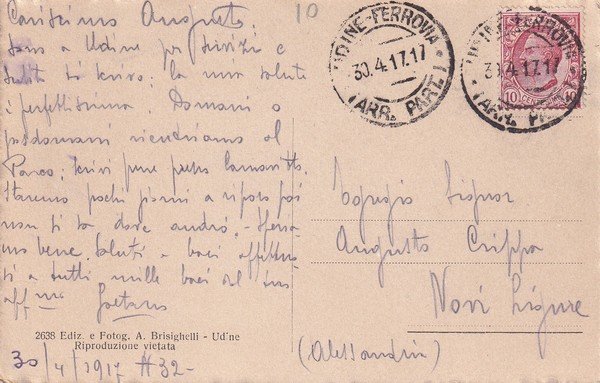 Carissimo Augusto.
Sono a Udine per servizi e
subito ti scrivo: la mia salute
è perfettissima. Domani o
posdomani rientriamo al
Parco; scrivi pure presso
Staremo pochi giorni a riposo poi
non si sa dove andrò. - 
bene. Saluti e baci
a tutti mille baci dal tuo
aff.mo Gaetano
10
UDINE-FERROVIA
30.4.17.17
(ARR. PART.)
UDINE-FERROVIA
30.4.17.17
(ARR. PART.)
10
Egregio Signor
Augusto Crippa
Novi Ligure
(Alessandria)
2638 Ediz. e Fotog. A. Brisighelli - Udine
Riproduzione vietata
30/4/1917 #32-